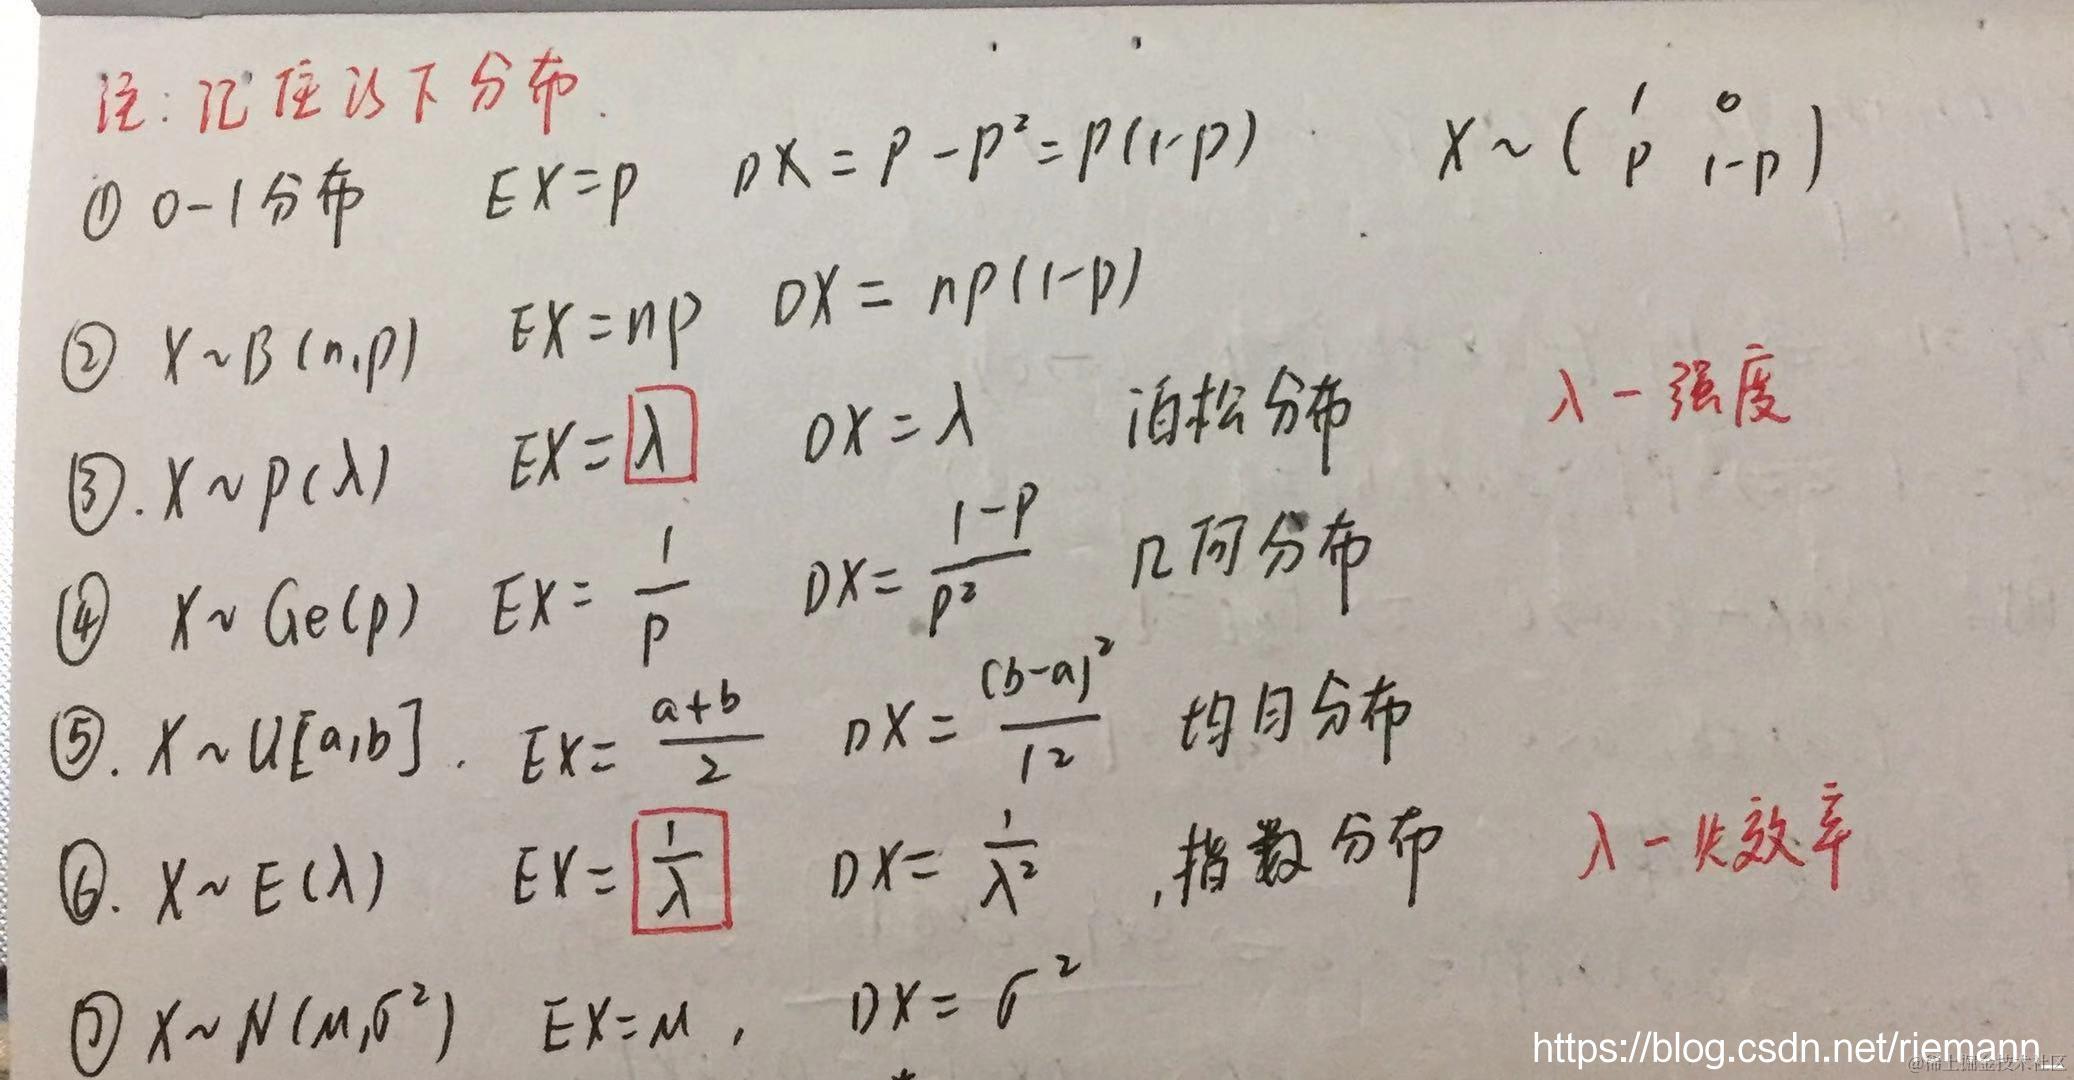 注:记住以下分布.
① 0-1分布 EX=p DX=p-p²=p(1-p) X~( 1 0
p 1-p )
② X~B(n,p) EX=np DX=np(1-p)
③. X~P(λ) EX=λ DX=λ 泊松分布 λ-强度
④ X~Ge(p) EX=1/p DX=(1-p)/p² 几何分布
⑤. X~U[a,b]. EX=(a+b)/2 DX=(b-a)²/12 均匀分布
⑥. X~E(λ) EX=1/λ DX=1/λ², 指数分布 λ-失效率
⑦ X~N(μ,σ²) EX=μ, DX=σ²
https://blog.csdn.net/riemann_
@稀土掘金技术社区